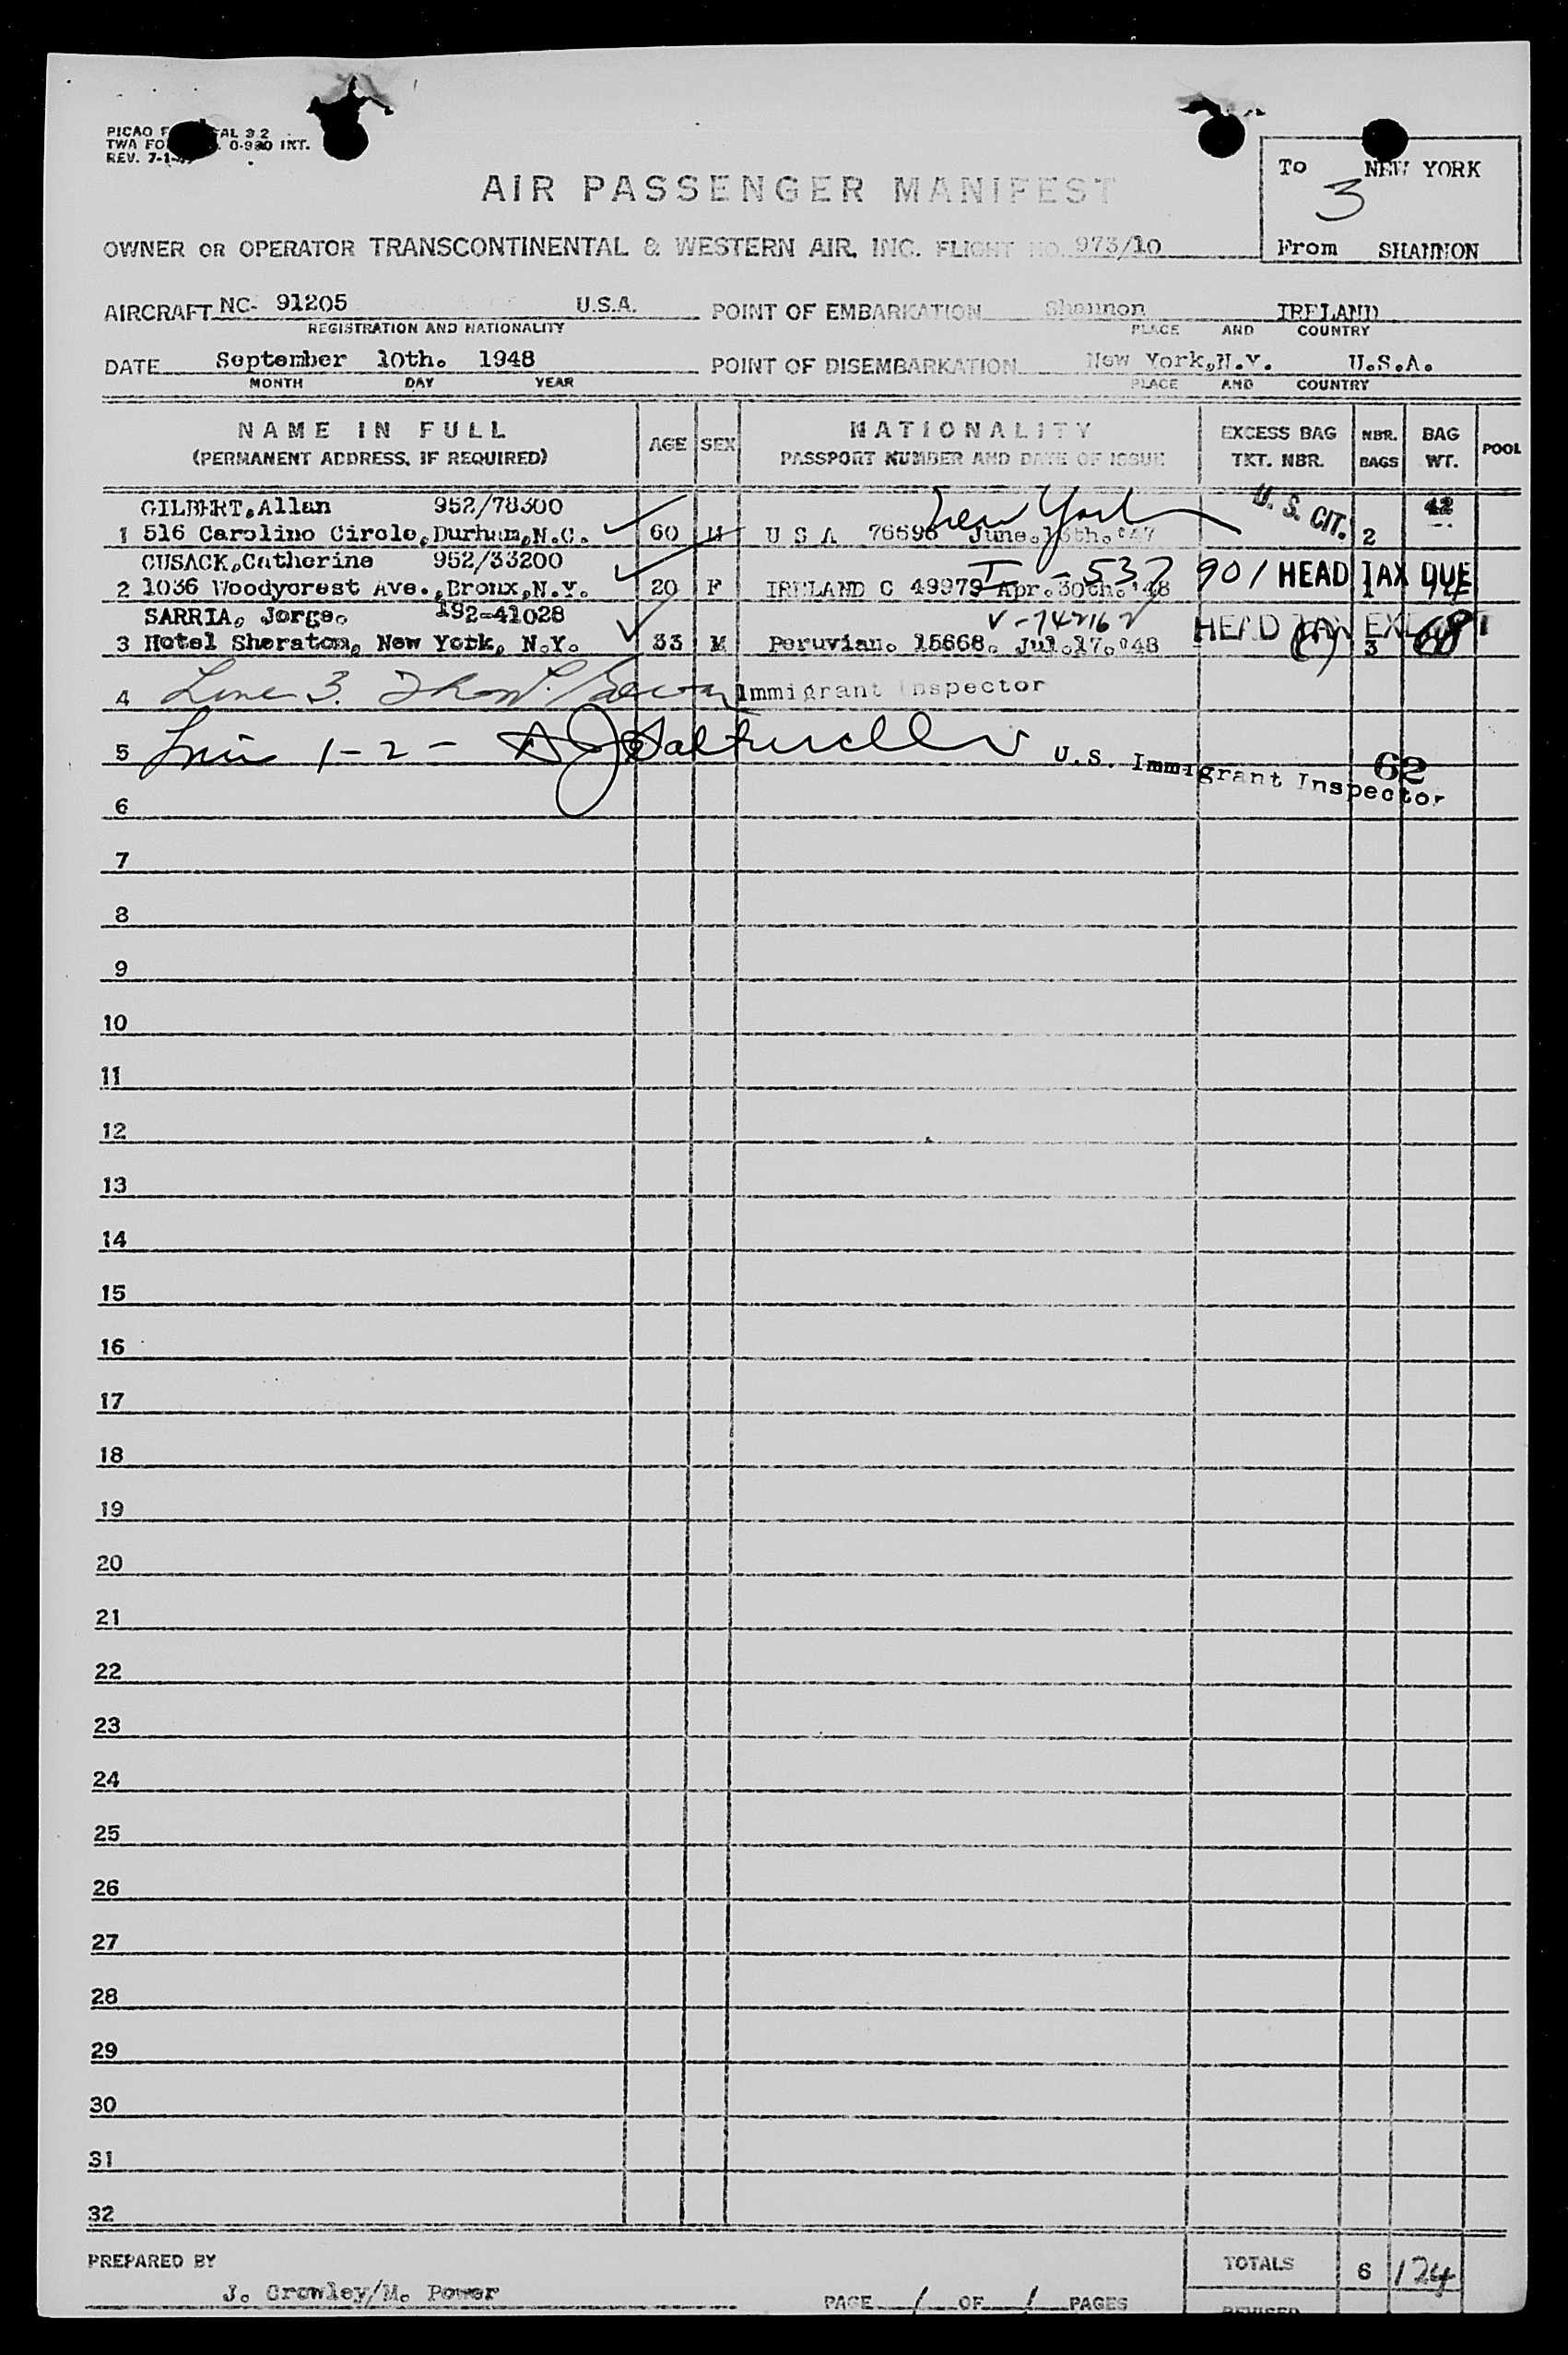 PICAO F AL 3 2
TWA FO 0-930 INT.
REV. 7-1-
To NEW YORK
3
From SHANNON
AIR PASSENGER MANIFEST
OWNER OR OPERATOR TRANSCONTINENTAL & WESTERN AIR, INC. FLIGHT NO. 973/10
AIRCRAFT NC- 91205 U.S.A. POINT OF EMBARKATION Shannon IRELAND
REGISTRATION AND NATIONALITY PLACE AND COUNTRY
DATE September 10th. 1948 POINT OF DISEMBARKATION New York,N.Y. U.S.A.
MONTH DAY YEAR PLACE AND COUNTRY
NAME IN FULL AGE SEX NATIONALITY EXCESS BAG NBR. BAG POOL
(PERMANENT ADDRESS, IF REQUIRED) PASSPORT NUMBER AND DATE OF ISSUE TKT. NBR. BAGS WT.
GILBERT,Allan 952/78300 New York U.S. CIT. 42
1 516 Carolino Circle,Durham,N.C. 60 M U S A 76598 June. th. '47 2
CUSACK,Catherine 952/33200 I - 537 901 HEAD TAX DUE
2 1036 Woodycrest Ave.,Bronx,N.Y. 20 F IRELAND C 49979 Apr.30th.'48 1
SARRIA, Jorge. 192-41028 V-742162 HEAD TAX
3 Hotel Sheraton, New York, N.Y. 33 M Peruvian. 15668. Jul.17.'48 3 68
4 Line 3. Immigrant Inspector
5 Line 1-2- U.S. Immigrant Inspector 62
6
7
8
9
10
11
12
13
14
15
16
17
18
19
20
21
22
23
24
25
26
27
28
29
30
31
32
PREPARED BY TOTALS 6 124
J. Crowley/M. Power
PAGE 1 OF 1 PAGES REVISED